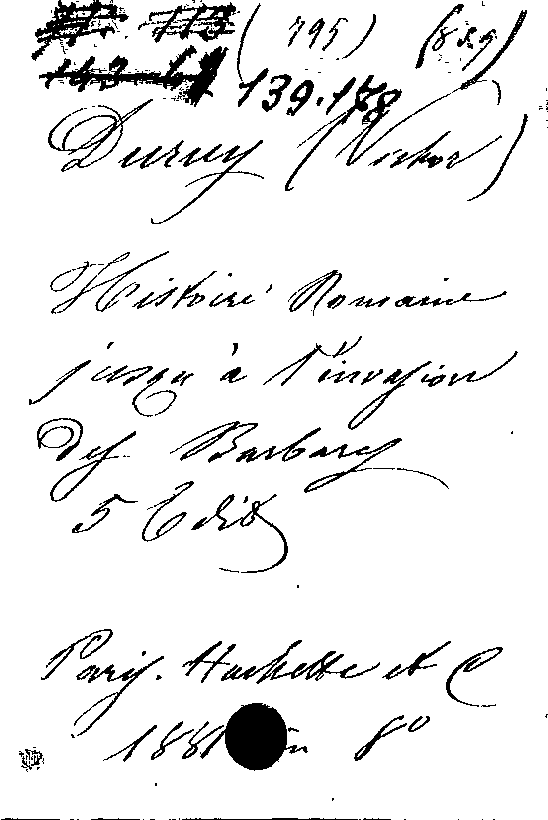 (795) (859)
139.178
Duruy (Victor)
Histoire Romaine
jusqu'à l'invasion
des Barbares
5 Edit
Paris. Hachette et C
1881 in 8°